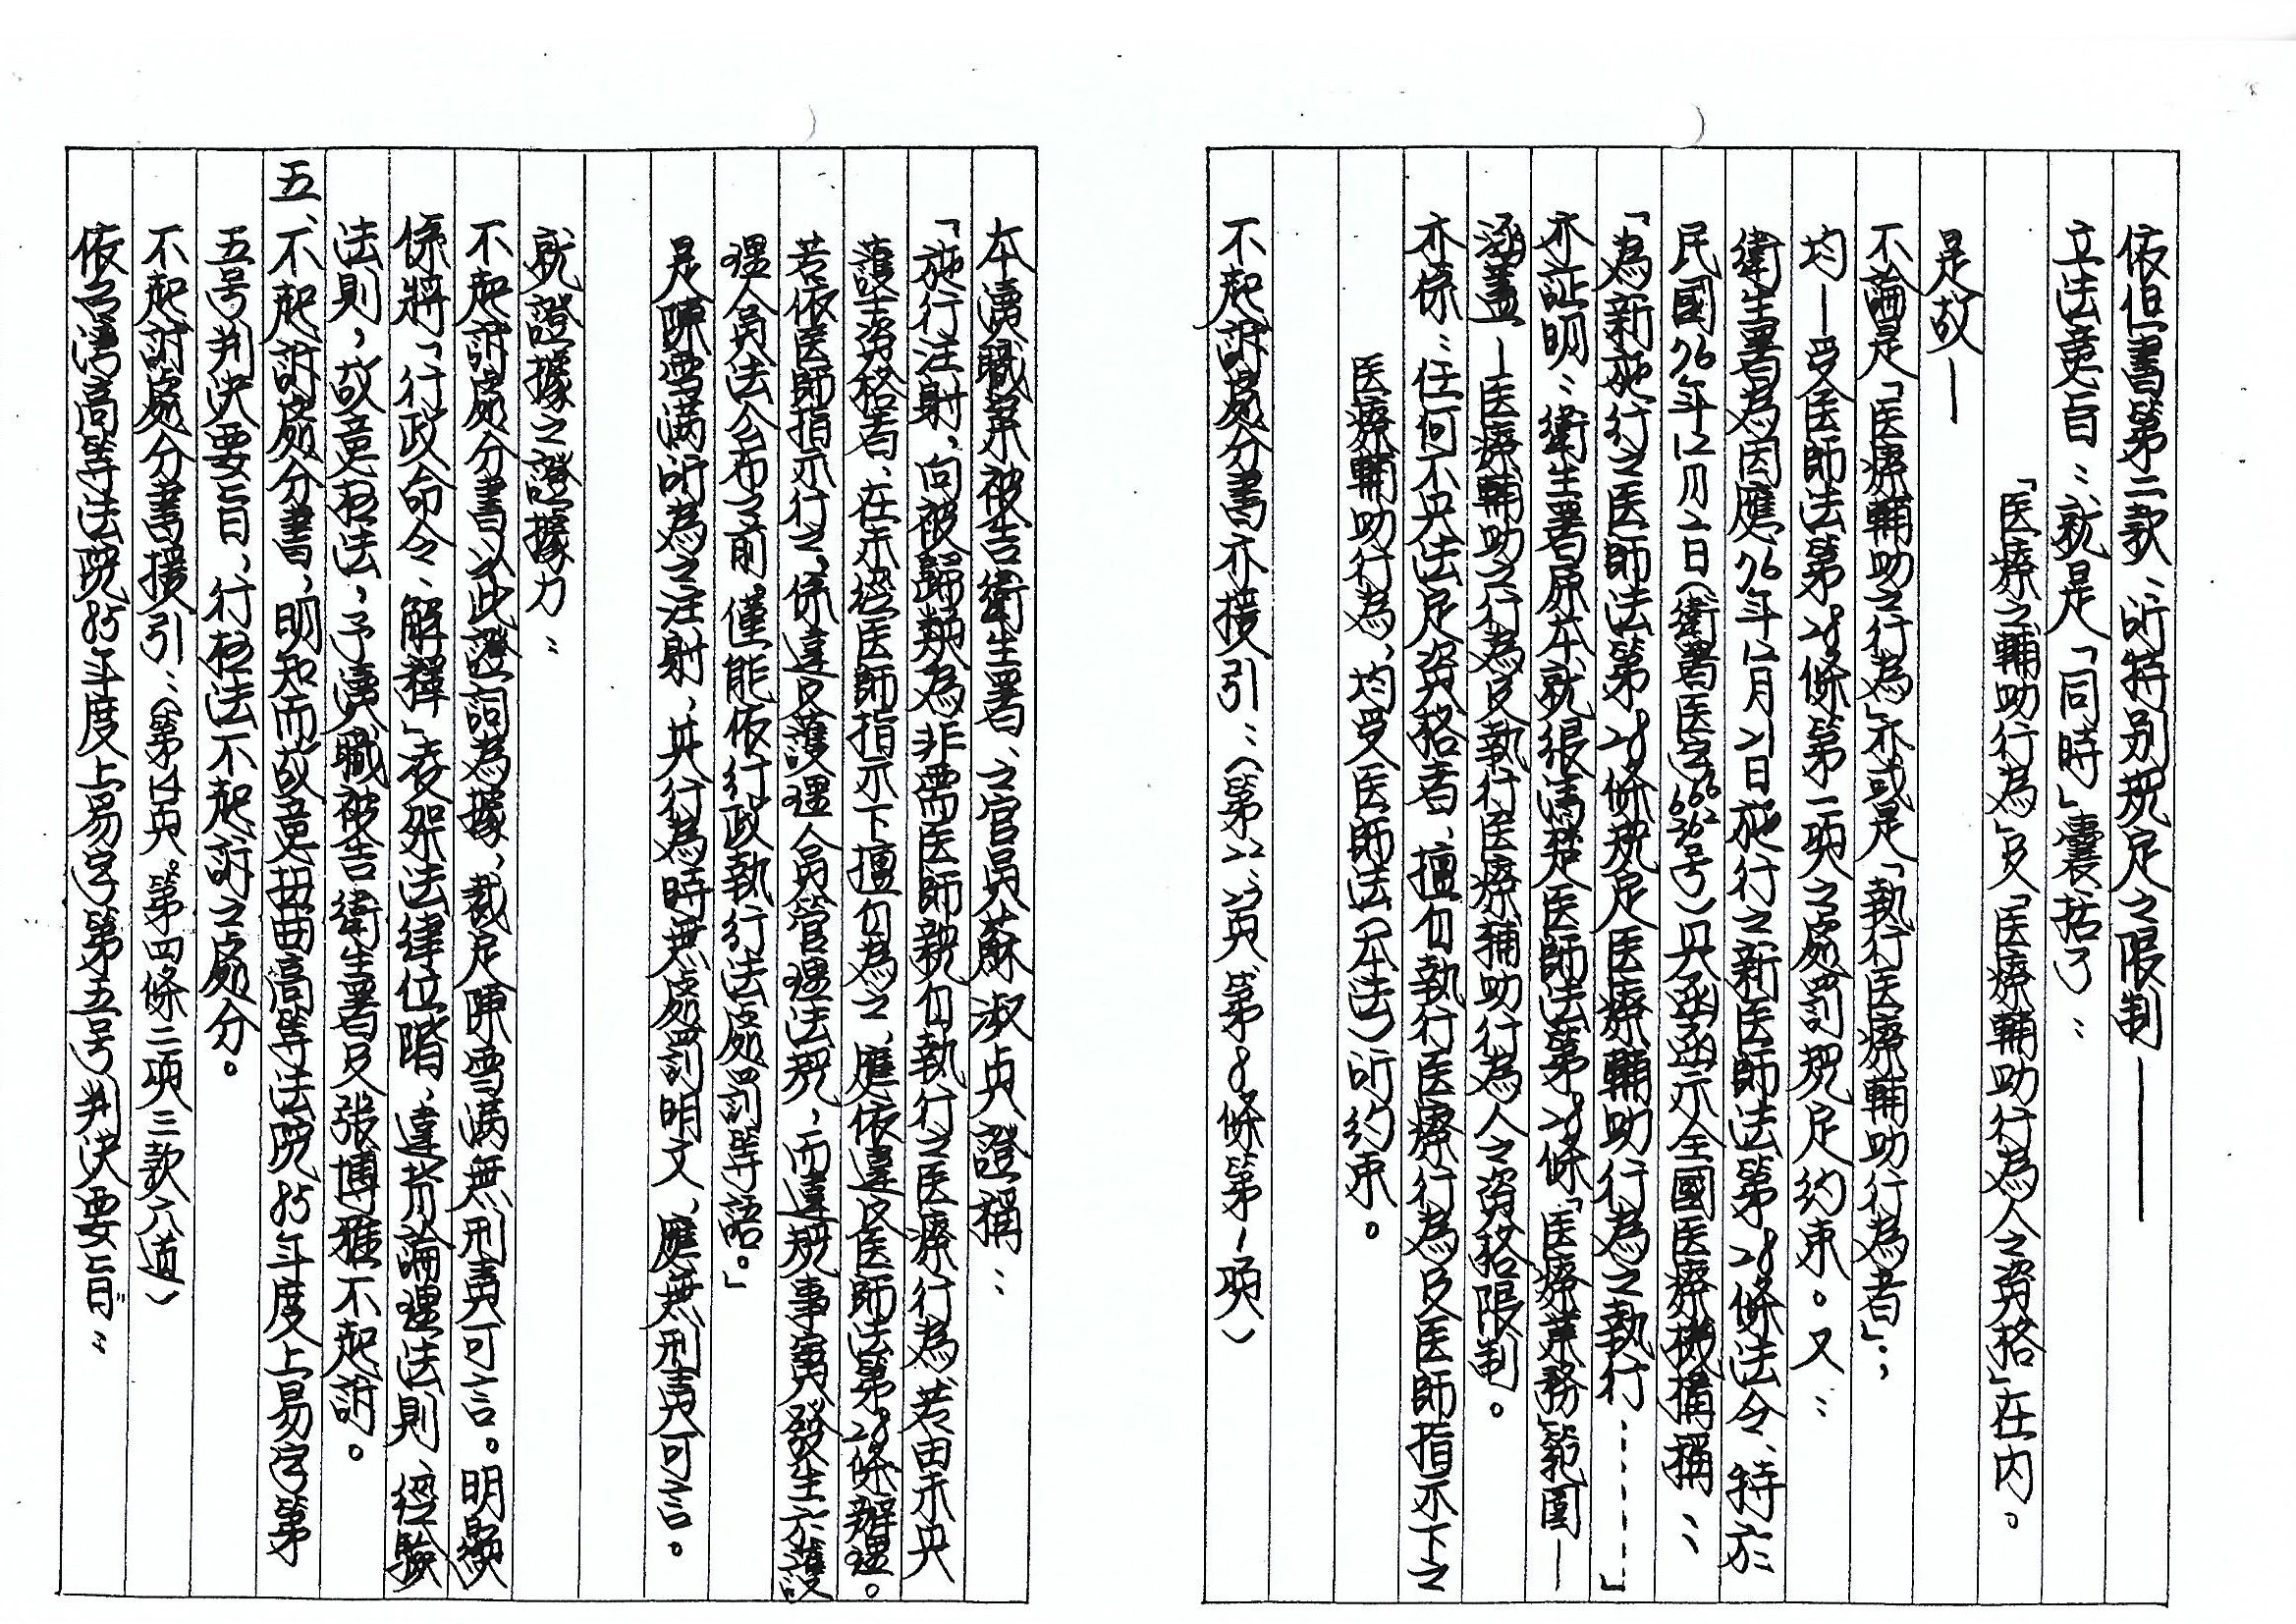 依但書第二款：所特別規定之限制——
立法意旨：就是「同時」囊括了：
「医療之輔助行為」及「医療輔助行為人之資格」在内。
是故—
不論是「医療輔助之行為」亦或是「執行医療輔助行為者」；
均—受医師法第28條第一項之處罰規定約束。又：
衛生署為因應76年12月21日施行之新医師法第28條法令、特於
民國76年12月2日（衛署医字666362号）以函函示全國医療機構稱：
「為新施行之医師法第28條規定医療輔助行為之執行……」
亦証明：衛生署原本就很清楚医師法第28條「医療業務」範圍—
涵蓋—医療輔助之行為及執行医療輔助行為人之資格限制。
亦係：任何不具法定資格者、擅自執行医療行為及医師指示下之
医療輔助行為，均受医師法（本法）所約束。
不起訴處分書亦援引：（第22、23頁、第8條第一項）
本瀆職案被告衛生署、之官員蘇淑貞證稱：
「施行注射、向被歸類為非需医師親自執行之医療行為、若由未具
護士資格者、在未經医師指示下擅自為之、應依違反医師法第28條辦理。
若依医師指示行之，係違反護理人員管理法規，而違規事實發生於護
理人員法公布之前，僅能依行政執行法處罰等語。」
是陳雪满所為之注射，其行為時無處罰明文、應無刑責可言。
就證據之證據力：
不起訴處分書以此證詞為據、裁定陳雪满無刑責可言。明顯
係將、行政命令、解釋」表架法律位階，違背論理法則、經驗
法則，故意枉法，予瀆職被告衛生署及張博雅不起訴。
五、不起訴處分書，明知而故意扭曲高等法院85年度上易字第
五号判決要旨，行枉法不起訴之處分。
不起訴處分書援引：（第14頁。第四條二項三款六道）
依台湾高等法院85年度上易字第五号判決要旨：